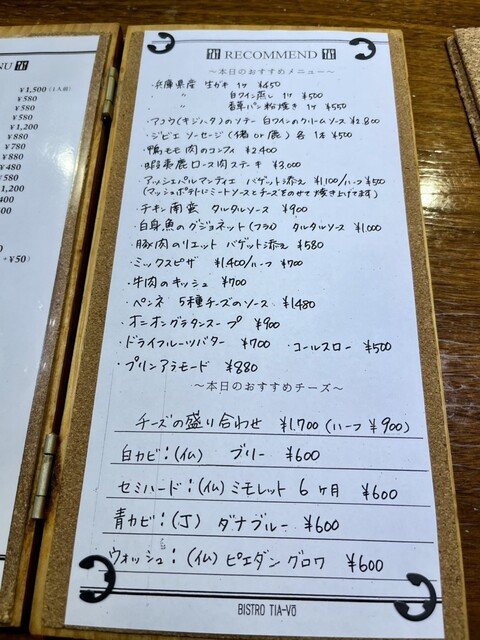 NU
¥1,500(1人前)
¥580
¥580
¥580
¥1,200
¥880
¥780
¥680
¥480
¥580
¥1,200
¥400
¥500
+¥50)
RECOMMEND
～本日のおすすめメニュー～
・兵庫県産 生ガキ 1ケ ¥450
〃 白ワイン蒸し 1ケ ¥500
〃 香草パン粉焼き 1ケ ¥550
・アコウ(キジハタ)のソテー 白ワインのクリームソース ¥2,800
・ジビエ ソーセージ(猪 or 鹿) 各 1本 ¥500
・鴨モモ肉のコンフィ ¥2,400
・蝦夷鹿ロース肉ステーキ ¥3,000
・アッシェパルマンティエ バゲット添え ¥1,100/ハーフ ¥550
(マッシュポテトにミートソースとチーズをのせて焼き上げてます)
・チキン南蛮 タルタルソース ¥900
・白身魚のグジョネット(フライ) タルタルソース ¥1,000
・豚肉のリエット バゲット添え ¥580
・ミックスピザ ¥1,400/ハーフ ¥700
・牛肉のキッシュ ¥700
・ペンネ 5種チーズのソース ¥1,480
・オニオングラタンスープ ¥900
・ドライフルーツバター ¥700 ・コールスロー ¥500
・プリンアラモード ¥880
～本日のおすすめチーズ～
チーズの盛り合わせ ¥1,700 (ハーフ ¥900)
白カビ:(仏) ブリー ¥600
セミハード:(仏)ミモレット 6ヶ月 ¥600
青カビ:(丁) ダナブルー ¥600
ウォッシュ:(仏)ピエダングロワ ¥600
BISTRO TIA-VÕ